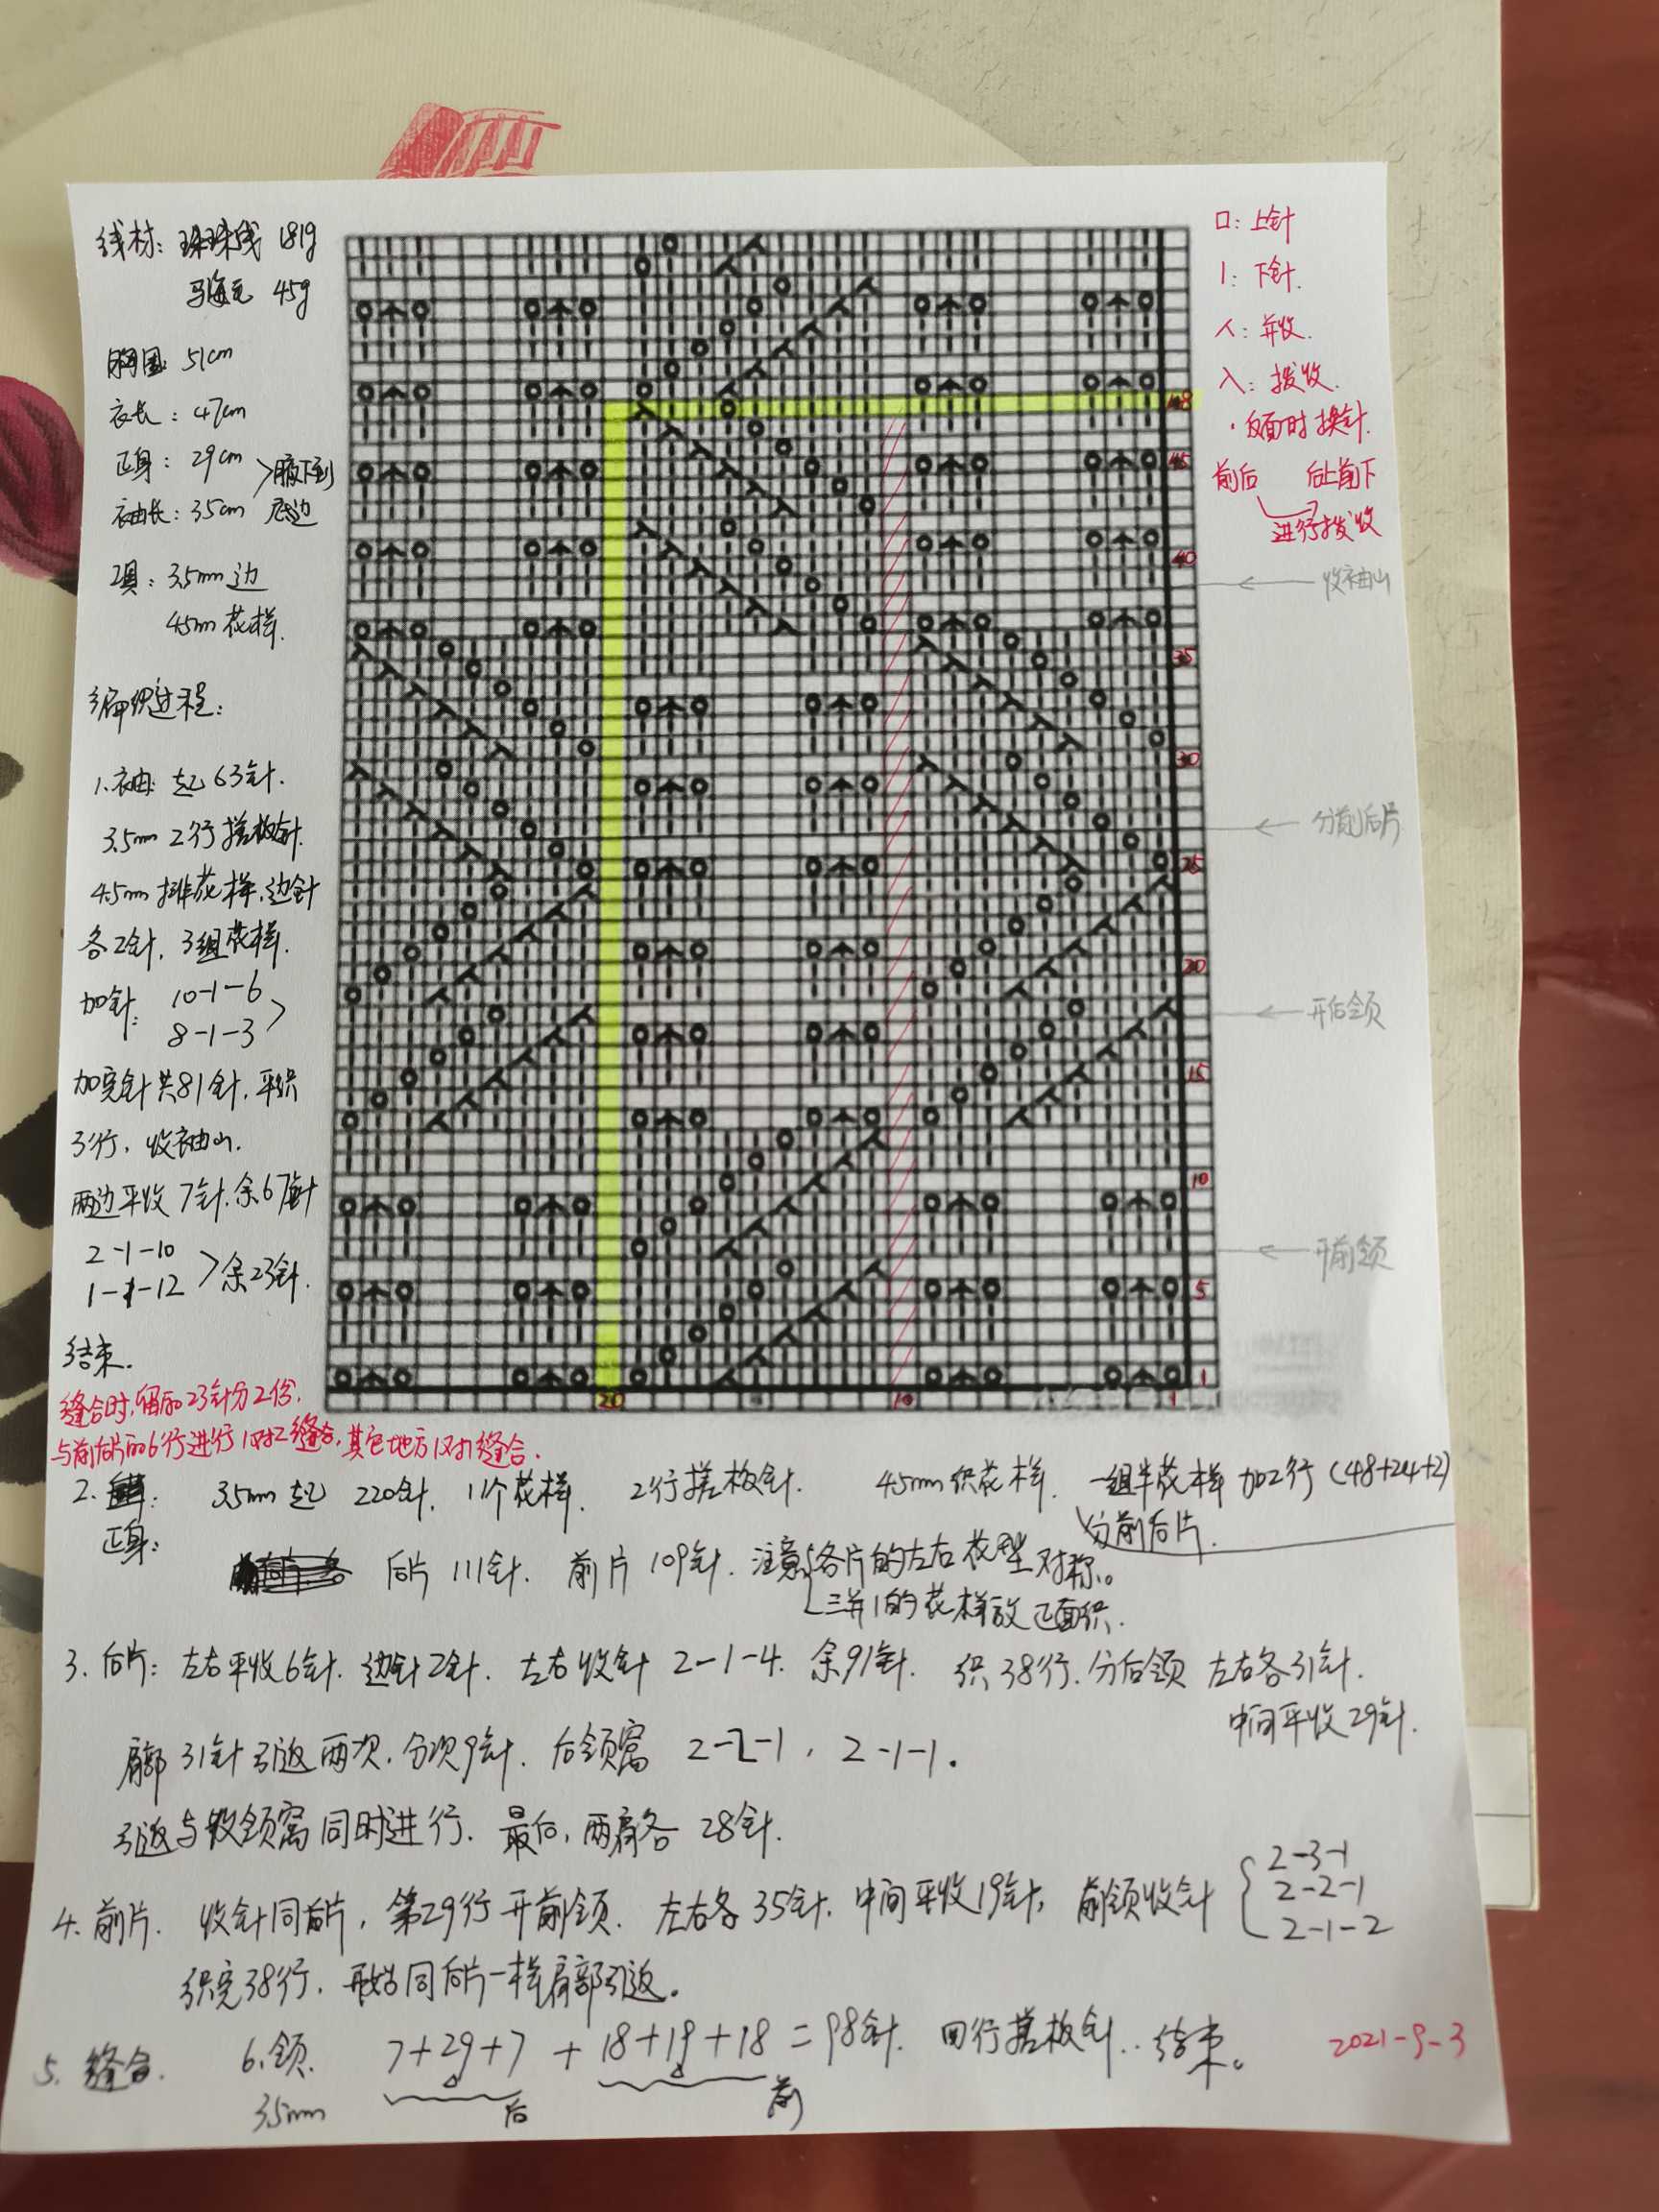 线材: 珠珠线 181g
马海毛 45g
胸围: 51cm
衣长: 47cm
正身: 29cm
袖长: 35cm
>腋下到
底边
工具: 3.5mm 边
4.5mm 花样.
编织过程:
1. 衣袖: 起 63针.
3.5mm 2行搓板针.
4.5mm 排花样, 边针
各2针, 3组花样.
加针: 10-1-6
8-1-3
加完针共81针, 平织
3行, 收袖山.
两边平收 7针. 余67针
2-1-10
1-1-12 >余23针.
结束.
缝合时, 留的23针分2份,
与前后片的6行进行1对2缝合, 其它地方1对1缝合.
口: 上针
I: 下针.
人: 并收.
入: 拨收.
·反面时换针.
前后 后上前下
进行拨收
48
45
40
收袖山
35
30
分前后片
25
20
开后领
15
10
开前领
5
1
20 10 1
2. 正身: 3.5mm 起 220针. 11个花样. 2行搓板针. 4.5mm 织花样. 一组半花样 加2行 (48+24+2)
分前后片.
后片 111针. 前片 109针. 注意{各片的左右花型对称。
三并1的花样放正面织.
3. 后片: 左右平收6针. 边针2针. 左右收针 2-1-4. 余91针. 织38行. 分后领 左右各31针.
中间平收29针.
肩部 31针引返两次, 分次9针. 后领窝 2-2-1, 2-1-1.
引返与收领窝同时进行. 最后, 两肩各 28针.
4. 前片. 收针同后片, 第29行开前领. 左右各 35针. 中间平收19针, 前领收针 { 2-3-1
2-2-1
2-1-2
织完38行, 开始同后片一样肩部引返。
5. 缝合. 6. 领. 7+29+7 + 18+19+18 = 98针. 四行搓板针.. 结束。 2021-9-3
3.5mm 后 前